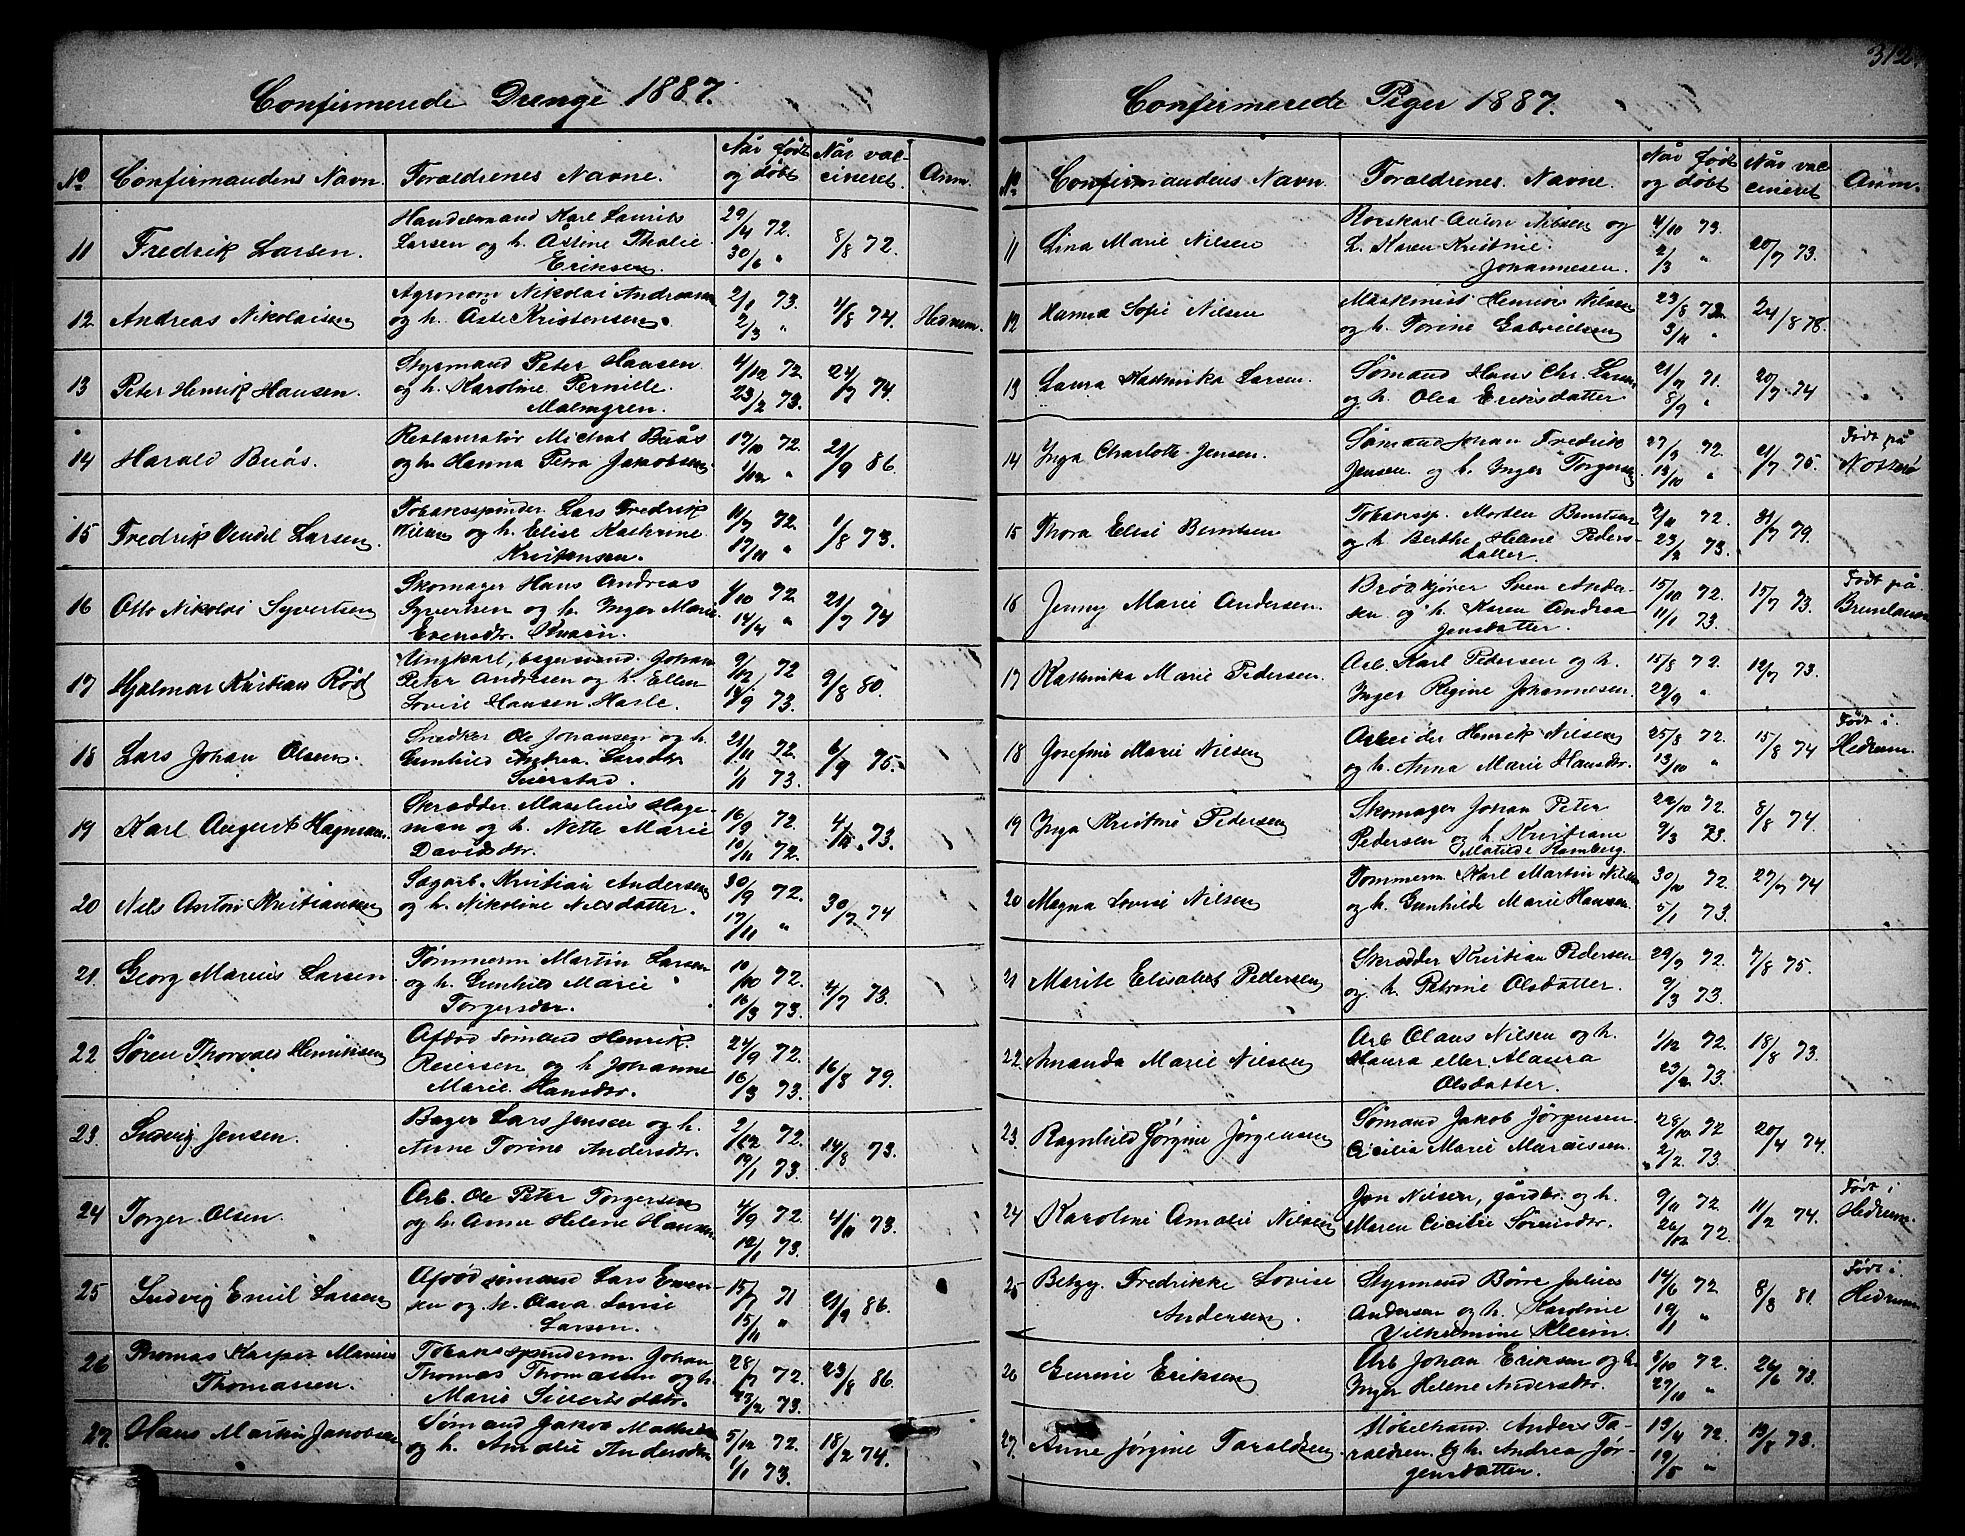 312
Confirmerede Drenge 1887.
No Confirmandens Navn. Forældrenes Navne. Når født og døbt Når vaccineret. Anm.
11 Fredrik Larsen. Handelsmand Karl Laurits
Larsen og h. Astine Thalie
Eriksen. 29/4 72. 30/6 " 8/8 72.
12 Andreas Nikolaisen Agronom Nikolai Andreasen
og h. Åste Kristensen. 2/1 73. 2/3 " 4/8 74. Hedrum.
13 Peter Henrik Hansen. Styrmand Peter Hansen
og h. Karoline Pernille
Malmgren. 4/12 72. 23/2 73. 24/7 74.
14 Harald Buås. Restauratør Michal Buås
og h. Hanna Petra Jakobsen 17/10 72. 1/12 " 21/9 86.
15 Fredrik Vendel Larsen. Tobaksspinder Lars Fredrik
Nilsen og h. Elise Kathrine
Kristensen. 11/7 72. 17/11 " 1/8 73.
16 Otto Nikolai Syvertsen Skomager Hans Andreas
Syvertsen og h. Inger Marie
Evensdtr. 1/10 72. 14/4 " 21/7 74
17 Hjalmar Kristian Rød Ungkarl, bagersvend Johan
Peter Andresen og h. Ellen
Lovise Hansen Hasle. 9/12 72 14/9 73. 9/8 80.
18 Lars Johan Olsen. Snedker Ole Johansen og h.
Gunhild Andrea Larsdtr
Seierstad. 21/11 72. 1/1 73. 6/9 75.
19 Karl August Hagman. Skrædder Maselius Hage-
man og h. Nette Marie
Davidsdtr. 16/9 72. 10/11 72. 4/12 73.
20 Nils Anton Kristiansen Sagarb. Kristian Andersen
og h. Nikoline Nilsdatter. 30/9 72. 17/11 " 30/7 74
21. Georg Marius Larsen Tømmerm Martin Larsen
og h. Gunhild Marie
Torgersdtr. 10/10 72. 16/3 73. 4/7 73.
22. Søren Thorvald Henriksen Afdød Sømand Henrik
Reiersen og h Johanne
Marie Hansdtr. 24/9 72. 16/3 73. 16/8 79.
23. Ludvig Jensen. Bager Lars Jensen og h.
Anne Torine Andersdtr. 2/12 72. 19/1 73. 14/8 73.
24 Torger Olsen. Arb. Ole Peter Torgersen
og h. Anne Helene Hansen. 4/9 72. 12/1 73. 4/11 73.
25 Ludvig Emil Larsen Afdød sømand Lars Even-
sen og h. Olava Lovise
Larsen. 15/7 71 15/11 " 21/9 86.
26 Thomas Kasper Marius
Thomassen. Tobaksspinderm. Johan
Thomas Thomassen og h.
Marie Sivertsdtr. 28/7 72. 23/2 73. 23/8 86.
27. Hans Martin Jakobsen Sømand Jakob Mathisen
og h. Amalie Andersdtr 5/12 72. 1/1 73. 18/2 74.
Confirmerede Piger 1887.
No Confirmandens Navn. Forældrenes Navne. Når født og døbt Når vaccineret Anm.
11 Lina Marie Nilsen Rorskarl Anton Nilsen og
h. Karen Kristine
Johannesen. 4/10 73. 2/3 " 20/7 73.
12 Hanna Sofie Nilsen Maskinist Henrik Nilsen
og h. Torine Gabrielsen 23/8 72. 3/11 " 24/8 78.
13 Laura Kathinka Larsen. Sømand Hans Chr. Larsen
og h. Olea Eriksdatter 21/7 71. 8/9 " 20/7 74
14 Inga Charlotte Jensen. Sømand Johan Fredrik
Jensen og h. Inger Torgersen 27/7 72. 13/10 " 21/7 75. Født på
Nøtterø
15 Thora Elise Berntsen Tobakssp. Morten Berntsen
og h Berthe Helene Peders-
datter. 9/11 72. 23/2 73. 31/7 79.
16 Jenny Marie Andersen. Brødkjører Sören Ander-
sen og h Karen Andrea
Jensdatter. 15/10 72. 11/1 73. 15/7 73. Født på
Brunlanes
17 Kathinka Marie Pedersen. Arb. Karl Pedersen og h.
Inger Regine Johannesen 15/8 72. 29/9 " 12/7 73.
18 Josefine Marie Nilsen Arbeider Henrik Nilsen
og h. Anna Marie Hansdtr. 25/8 72. 13/10 " 15/8 74 Født i.
Hedrum.
19 Inga Kristine Pedersen Skomager Johan Peter
Pedersen og h. Kristiane
Matilde Ramberg. 22/10 72. 9/3 73. 8/8 74.
20 Magna Lovise Nilsen Tømmerm Karl Martin Nilsen
og h. Gunhilde Marie Hansen. 30/10 72. 5/1 73. 27/7 74
21 Marite Elisabet Pedersen Skrædder Kristian Pedersen
og h. Petrine Olsdatter. 29/9 72. 9/3 73. 7/8 75.
22. Amanda Marie Nilsen Arb Olaus Nilsen og h.
Maura eller Alaura
Olsdatter. 1/12 72. 23/2 73. 18/8 73.
23. Ragnhild Jørgine Jørgensen Sømand Jakob Jørgensen
Cicilia Marie Marcussen. 28/10 72 2/2 73. 20/4 74.
24 Karoline Amalie Nilsen Jon Nilsen, gårdbr. og h.
Maren Cicilie Sørensdtr. 9/11 72 26/12 72. 11/2 74. Født i
Hedrum.
25 Betzy Fredrikke Lovise
Andersen. Styrmand Börre Julius
Andersen og h. Karoline
Vilhelmine Klerin. 14/6 72. 19/1 " 8/3 81. Født i.
Hedrum
26 Gurine Eriksen Arb Johan Eriksen og h.
Inger Helene Andersdtr. 8/10 72. 27/10 " 26/6 73.
27. Anne Jørgine Taraldsen Møbelhand. Anders Ta-
raldsen og h. Andrea Jør-
gensdatter. 13/4 72. 19/5 " 13/8 73.